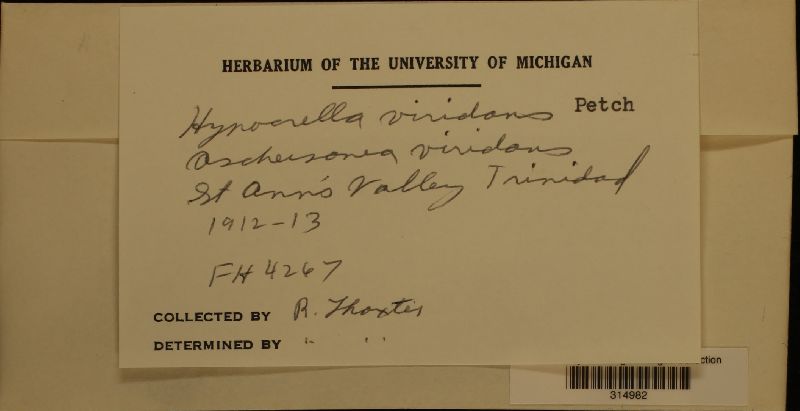 HERBARIUM OF THE UNIVERSITY OF MICHIGAN
Hypocrella viridans Petch
Aschersonia viridans
St Ann's Valley Trinidad
1912-13
FH 4267
COLLECTED BY R. Thaxter
DETERMINED BY " "
ction
314982